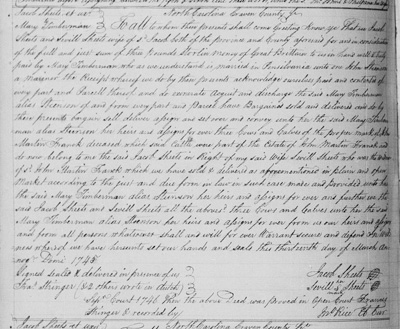 Jacob Sheets et ux North Carolina Craven County ss
Mary Timberman To all to whom these presents shall come Greeting Know ye that we Jacob
Sheets and Sevill Sheets wife of sd Jacob both of the province and County aforesaid for and in consideration
of the full and just sum of three pounds Sterling money of Great Brittain to us in hand well & truly
paid by Mary Timberman who as we understand is married in Pensilvania with one John
a mariner the Receipt whereof we do by these presents acknowledge ourselves paid and contented of
every part and Parcell thereof and do exonerate acquit and discharge the said Mary Timberman
alias Stevenson of and from every part and Parcell have Bargained sold and delivered and do by
these presents bargain sell deliver assign and set over and convey unto her the said Mary Timber
man alias Stevenson her heirs and assigns for ever three Cows and Calves of the proper mark of John
Martin Franck deceased which said Cattle was part of the Estate of John Martin Franck and
do now belong to me the said Jacob Sheets in Right of my said Wife Sevill Sheets who was the widow
of sd John Martin Franck which we have sold & delivered as aforementioned in plain and open
Market according to the just and due form in law in such case made and provided unto her
the said Mary Timberman alias Stevenson her heirs and assigns for ever and further we the
said Jacob Sheets and Sevill Sheets all the above sd three Cows and Calves unto her the said
Mary Timberman alias Stevenson her heirs and assigns for ever from us our heirs and assigns
and from all persons whatsoever shall and will for ever Warrant secure and defend In Wit
ness whereof we have hereunto set our hands and seals this thirteenth day of March
Domini 1745
Signed sealed & delivered in presence of us Jacob Sheets
Fras Stringer (& 2 others wrote in dutch) Sevill Sheets
Sepr Court 1746 Then the above Deed was proved in Open Court Francis
Stringer & recorded by Jno Rice Ck Cur
Jacob Sheets et ux North Carolina Craven County ss